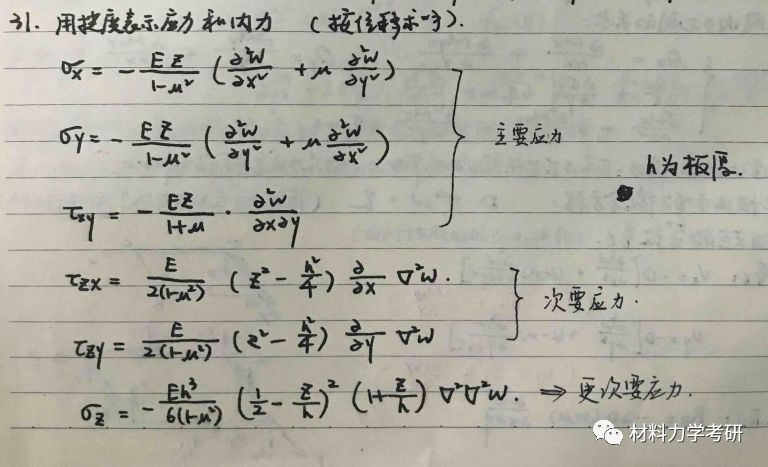 31. 用挠度表示应力和内力 (按位移求导).
σx = - Ez/(1-μ²) (∂²w/∂x² + μ ∂²w/∂y²)
σy = - Ez/(1-μ²) (∂²w/∂y² + μ ∂²w/∂x²)
主要应力
h为板厚.
τxy = - Ez/(1+μ) · ∂²w/∂x∂y
τzx = E/2(1-μ²) (z² - h²/4) ∂/∂x ∇²w.
次要应力.
τzy = E/2(1-μ²) (z² - h²/4) ∂/∂y ∇²w
σz = - Eh³/6(1-μ²) (1/2 - z/h)² (1+z/h) ∇²∇²w. ⇒ 更次要应力.
材料力学考研